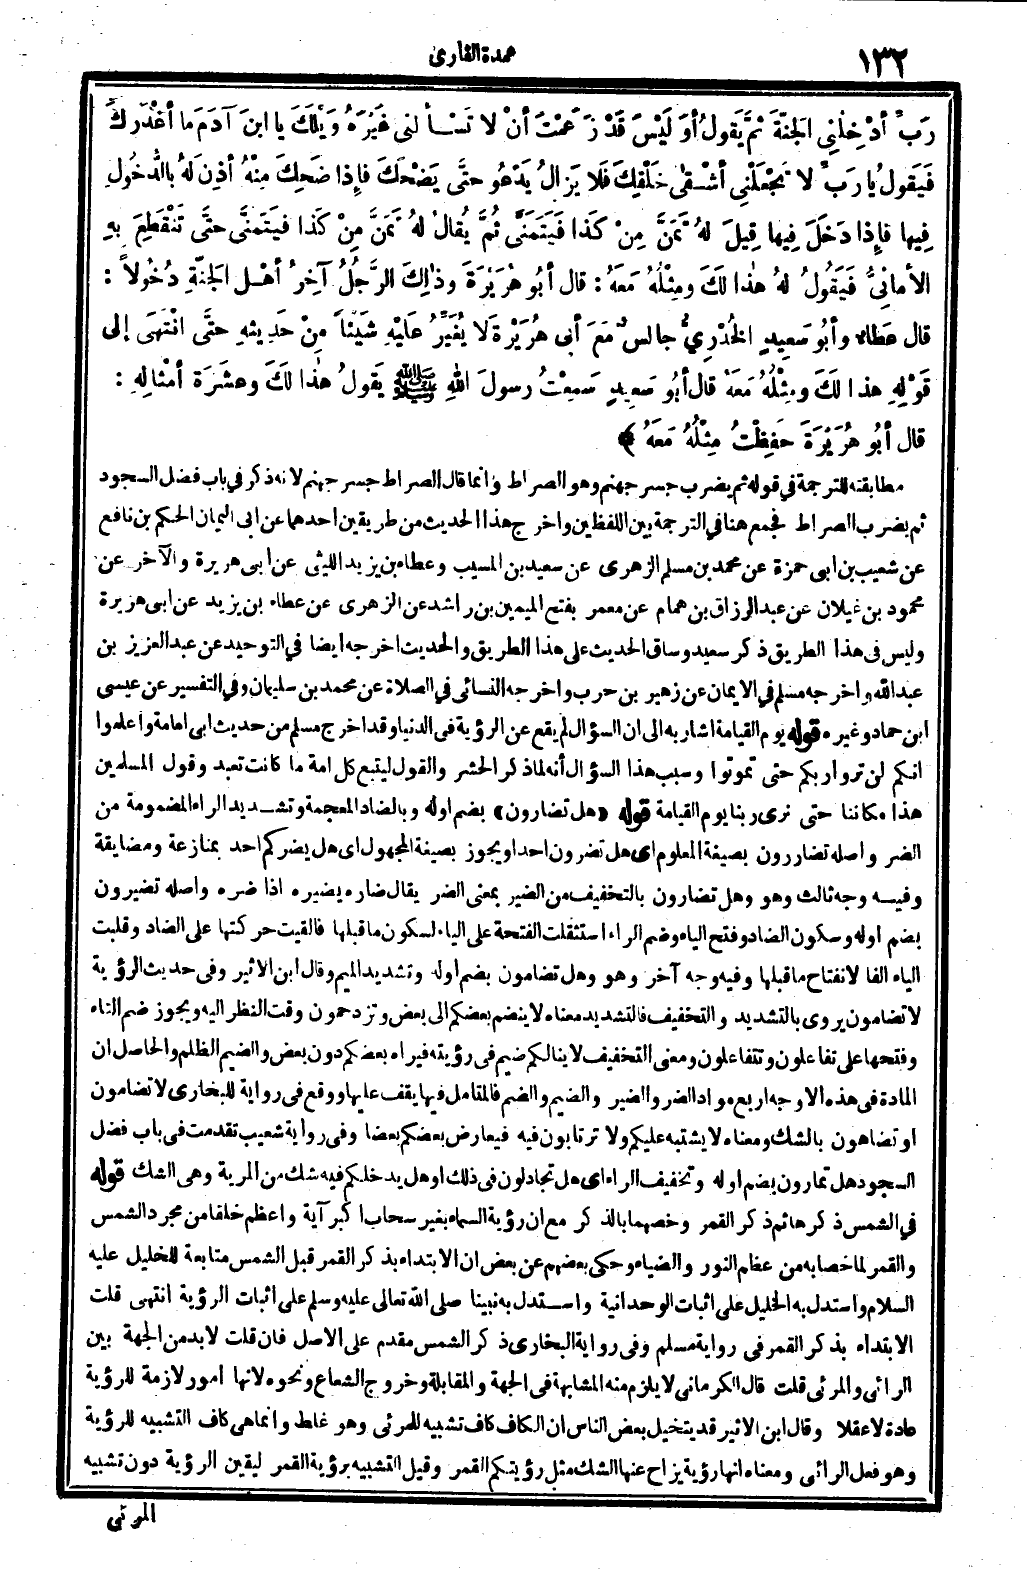 ١٣٢
عمدة القارى
رَبِّ أدْخِلْنِي الجَنَّةَ ثُمَّ يَقُولُ أوَ لَيْسَ قَدْ زَعَمْتَ أنْ لا تَسْألَنِي غَيْرَهُ ويْلَكَ يا ابنَ آدَمَ ما أغْدَرَكَ
فَيَقُولُ يا رَبِّ لا تَجْعَلْنِي أشْقَى خَلْقِكَ فَلا يَزَالُ يَدْعُو حتَّى يَضْحَكَ فإذا ضَحِكَ مِنْهُ أذِنَ لَهُ بالدُّخُولِ
فِيها فإذا دَخَلَ فِيها قِيلَ لهُ تَمَنَّ مِنْ كَذَا فَيَتَمَنَّى ثُمَّ يُقالُ لهُ تَمَنَّ مِنْ كَذَا فَيَتَمَنَّى حتَّى تَنْقَطِعَ بهِ
الأمانِيُّ فَيَقُولُ لهُ هٰذا لَكَ ومِثْلُهُ مَعَهُ : قال أبُو هُرَيْرَةَ وذٰلِكَ الرَّجُلُ آخِرُ أهْلِ الجَنَّةِ دُخُولاً :
قال عَطاء وأبُو سَعِيدٍ الخُدْرِيُّ جالِسٌ مَعَ أبى هُرَيْرَةَ لا يُغَيِّرُ عَلَيْهِ شَيْئاً مِنْ حَدِيثِهِ حتَّى انْتَهَى إلى
قَوْلِهِ هذا لَكَ ومِثْلُهُ مَعَهُ قال أبُو سَعِيدٍ سَمِعْتُ رسولَ اللهِ ﷺ يَقُولُ هٰذا لَكَ وعشَرَةُ أمْثالِهِ :
قال أبُو هُرَيْرَةَ حَفِظْتُ مِثْلُهُ مَعَهُ ﴾
مطابقته للترجمة في قوله ثم يضرب جسر جهنم وهو الصراط وانما قال الصراط جسر جهنم لانه ذكر في باب فضل السجود
ثم يضرب الصراط فجمع هنا في الترجمة بين اللفظين واخرج هذا الحديث من طريقين احدهما عن ابى اليمان الحكم بن نافع
عن شعيب بن ابى حمزة عن محمد بن مسلم الزهرى عن سعيد بن المسيب وعطاء بن يزيد الليثى عن ابى هريرة والآخر عن
محمود بن غيلان عن عبد الرزاق بن همام عن معمر بفتح الميمين بن راشد عن الزهرى عن عطاء بن يزيد عن ابى هريرة
وليس فى هذا الطريق ذكر سعيد وساق الحديث على هذا الطريق والحديث اخرجه ايضا في التوحيد عن عبد العزيز بن
عبد الله واخرجه مسلم في الايمان عن زهير بن حرب واخرجه النسائى في الصلاة عن محمد بن سليمان وفي التفسير عن عيسى
ابن حماد وغيره قوله يوم القيامة اشار به الى ان السؤال لم يقع عن الرؤية فى الدنيا وقد اخرج مسلم من حديث ابى امامة واعلموا
انكم لن تروا ربكم حتى تموتوا وسبب هذا السؤال أنه لما ذكر الحشر والقول ليتبع كل امة ما كانت تعبد وقول المسلمين
هذا مكاننا حتى نرى ربنا يوم القيامة قوله «هل تضارون» بضم اوله وبالضاد المعجمة وتشديد الراء المضمومة من
الضر واصله تضاررون بصيغة المعلوم اى هل تضرون احدا ويجوز بصيغة المجهول اى هل يضركم احد بمنازعة ومضايقة
وفيه وجه ثالث وهو وهل تضارون بالتخفيف من الضير بمعنى الضر يقال ضاره يضيره اذا ضره واصله تضيرون
بضم اوله وسكون الضاد وفتح الياء وضم الراء استثقلت الفتحة على الياء لسكون ما قبلها فالقيت حركتها على الضاد وقلبت
الياء الفا لانفتاح ما قبلها وفيه وجه آخر وهو وهل تضامون بضم اوله وتشديد الميم وقال ابن الاثير وفى حديث الرؤية
لا تضامون يروى بالتشديد والتخفيف فالتشديد معناه لا ينضم بعضكم الى بعض وتزدحمون وقت النظر اليه ويجوز ضم التاء
وفتحها على تفاعلون وتتفاعلون ومعنى التخفيف لا ينالكم ضيم فى رؤيته فيراه بعضكم دون بعض والضيم الظلم والحاصل ان
المادة فى هذه الاوجه اربع مواد الضر والضير والضيم والضم فالمتامل فيها يقف عليها ووقع فى رواية للبخارى لا تضامون
او تضاهون بالشك ومعناه لا يشتبه عليكم ولا ترتابون فيه فيعارض بعضكم بعضا وفى رواية شعيب تقدمت فى باب فضل
السجود هل تمارون بضم اوله وتخفيف الراء اى هل تجادلون فى ذلك او هل يدخلكم فيه شك من المرية وهى الشك قوله
في الشمس ذكرها ثم ذكر القمر وخصهما بالذكر مع ان رؤية السماء بغير سحاب اكبر آية واعظم خلقا من مجرد الشمس
والقمر لما خصا به من عظم النور والضياء وحكى بعضهم عن بعض ان الابتداء بذكر القمر قبل الشمس متابعة للخليل عليه
السلام واستدل به الخليل على اثبات الوحدانية واستدل به نبينا صلى الله تعالى عليه وسلم على اثبات الرؤية انتهى قلت
الابتداء بذكر القمر فى رواية مسلم وفى رواية البخارى ذكر الشمس مقدم على الاصل فان قلت لابد من الجهة بين
الرائى والمرئى قلت قال الكرمانى لا يلزم منه المشابهة فى الجهة والمقابلة وخروج الشعاع ونحوه لانها امور لازمة للرؤية
عادة لا عقلا وقال ابن الاثير قد يتخيل بعض الناس ان الكاف كاف تشبيه للمرئى وهو غلط وانما هى كاف التشبيه للرؤية
وهو فعل الرائى ومعناه انها رؤية يزاح عنها الشك مثل رؤيتكم القمر وقيل التشبيه برؤية القمر ليقين الرؤية دون تشبيه
المرئى